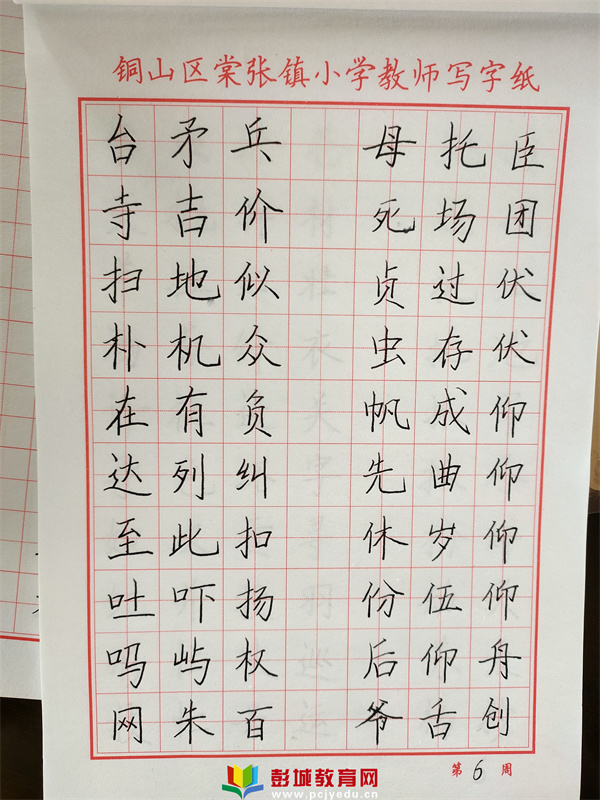 铜山区棠张镇小学教师写字纸
台矛兵母托臣
寺吉价死场团
扫地似贞过伏
朴机众虫存伏
在有负帆成仰
达列纠先曲仰
至此扣休岁仰
吐吓扬份伍仰
吗屿权后仰舟
网朱百爷舌创
第6周
彭城教育网
www.pcjyedu.cn